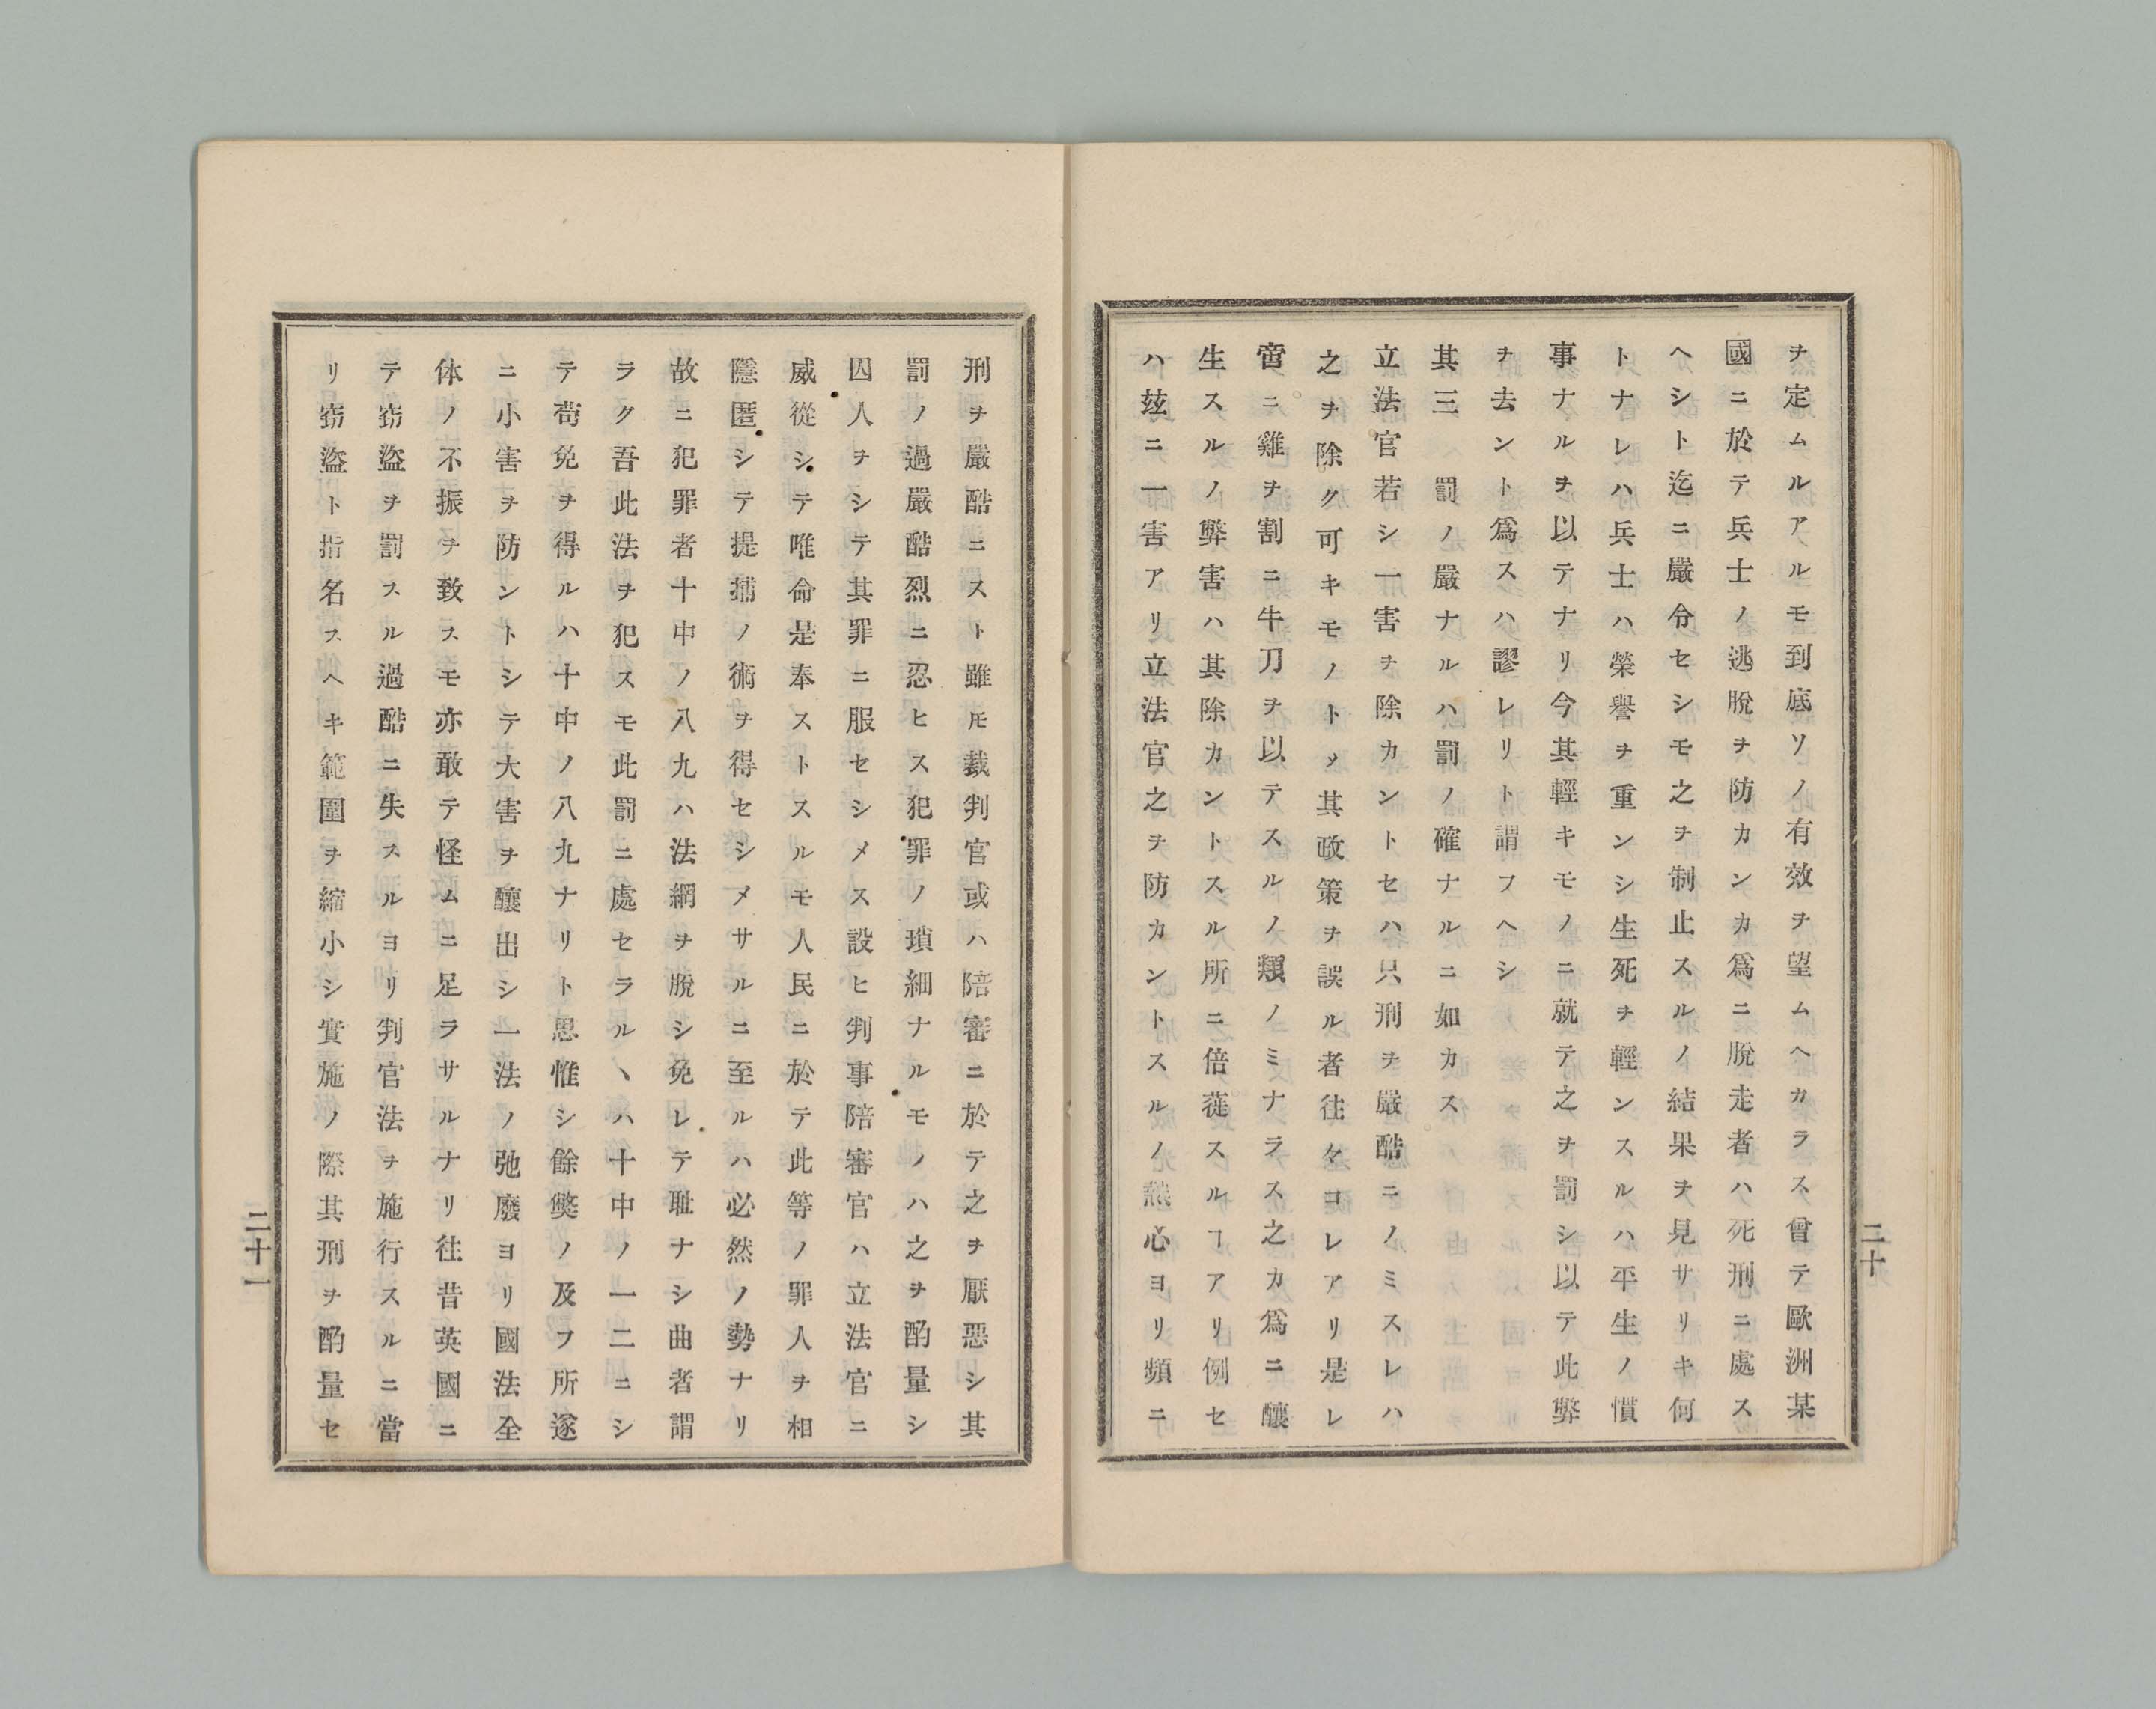 ヲ定ムルアルモ到底ソノ有效ヲ望ムヘカラス曾テ歐洲某
國ニ於テ兵士ノ逃脫ヲ防カンカ爲ニ脫走者ハ死刑ニ處ス
ヘシト迄ニ嚴令セシモ之ヲ制止スルノ結果ヲ見サリキ何
トナレハ兵士ハ榮譽ヲ重ンシ生死ヲ輕ンスルハ平生ノ慣
事ナルヲ以テナリ今其輕キモノニ就テ之ヲ罰シ以テ此弊
ヲ去ントト爲スハ謬レリト謂フヘシ
其三 罰ノ嚴ナルハ罰ノ確ナルニ如カス
立法官若シ一害ヲ除カントセハ只刑ヲ嚴酷ニノミスレハ
之ヲ除ク可キモノトシ其政策ヲ誤ル者往々コレアリ是レ
啻ニ雞ヲ割ニ牛刀ヲ以テスルノ類ノミナラス之カ爲ニ釀
生スルノ弊害ハ其除カントスル所ニ倍蓰スルヿアリ例セ
ハ玆ニ一害アリ立法官之ヲ防カントスルノ熱心ヨリ頻ニ
二十
刑ヲ嚴酷ニスト雖𪜈裁判官或ハ陪審ニ於テ之ヲ厭惡シ其
罰ノ過嚴酷烈ニ忍ヒス犯罪ノ瑣細ナルモノハ之ヲ酌量シ
囚人ヲシテ其罪ニ服セシメス設ヒ判事陪審官ハ立法官ニ
威從シテ唯命是奉ストスルモ人民ニ於テ此等ノ罪人ヲ相
隱匿シテ提捕ノ術ヲ得セシメサルニ至ルハ必然ノ勢ナリ
故ニ犯罪者十中ノ八九ハ法網ヲ脫シ免レテ耻ナシ曲者謂
ラク吾此法ヲ犯スモ此罰ニ處セラルヽハ十中ノ一二ニシ
テ苟免ヲ得ルハ十中ノ八九ナリト思惟シ餘獘ノ及フ所遂
ニ小害ヲ防ントシテ大害ヲ釀出シ一法ノ弛廢ヨリ國法全
体ノ不振ヲ致スモ亦敢テ怪ムニ足ラサルナリ往昔英國ニ
テ窃盜ヲ罰スル過酷ニ失スルヨリ判官法ヲ施行スルニ當
リ窃盜ト指名スヘキ範圍ヲ縮小シ實施ノ際其刑ヲ酌量セ
二十一